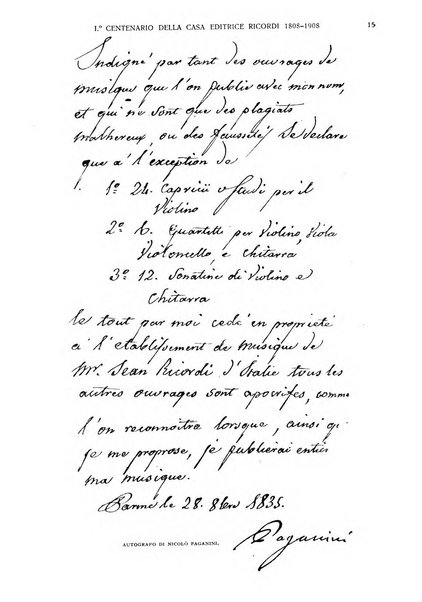 I.º CENTENARIO DELLA CASA EDITRICE RICORDI 1808-1908 15
Indigné par tant des ouvrages de
musique que l'on publie avec mon nom,
et qui ne sont que des plagiats
malhereux, ou des faussetés Je declare
que a l'exception de
1º 24. Capricii o Studi per il
Violino
2º 6. Quartetti per Violino, Viola
Violoncello, e chitarra
3º 12. Sonatine di Violino e
Chitarra
le tout par moi cedé en proprieté
a l'etablissement de musique de
Mr. Jean Ricordi d'Italie tous les
autres ouvrages sont apocrifes, comme
l'on reconnoitra lorsque, ainsi qe
je me proprose, je publierai entiés
ma musique.
Parme le 28. 8bre 1835.
Paganini
AUTOGRAFO DI NICOLÒ PAGANINI.